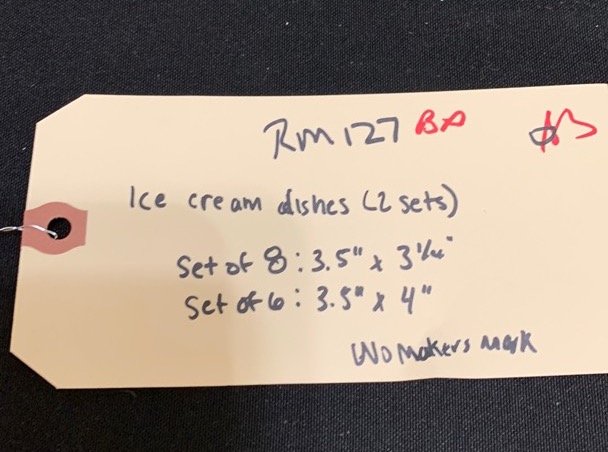 Rm 127 BP
Ice cream dishes (2 sets)
Set of 8 : 3.5" x 3 1/4"
Set of 6 : 3.5" x 4"
No makers mark